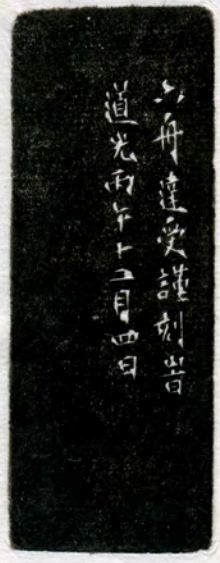 六舟達受謹刻峕
道光丙午十二月四日